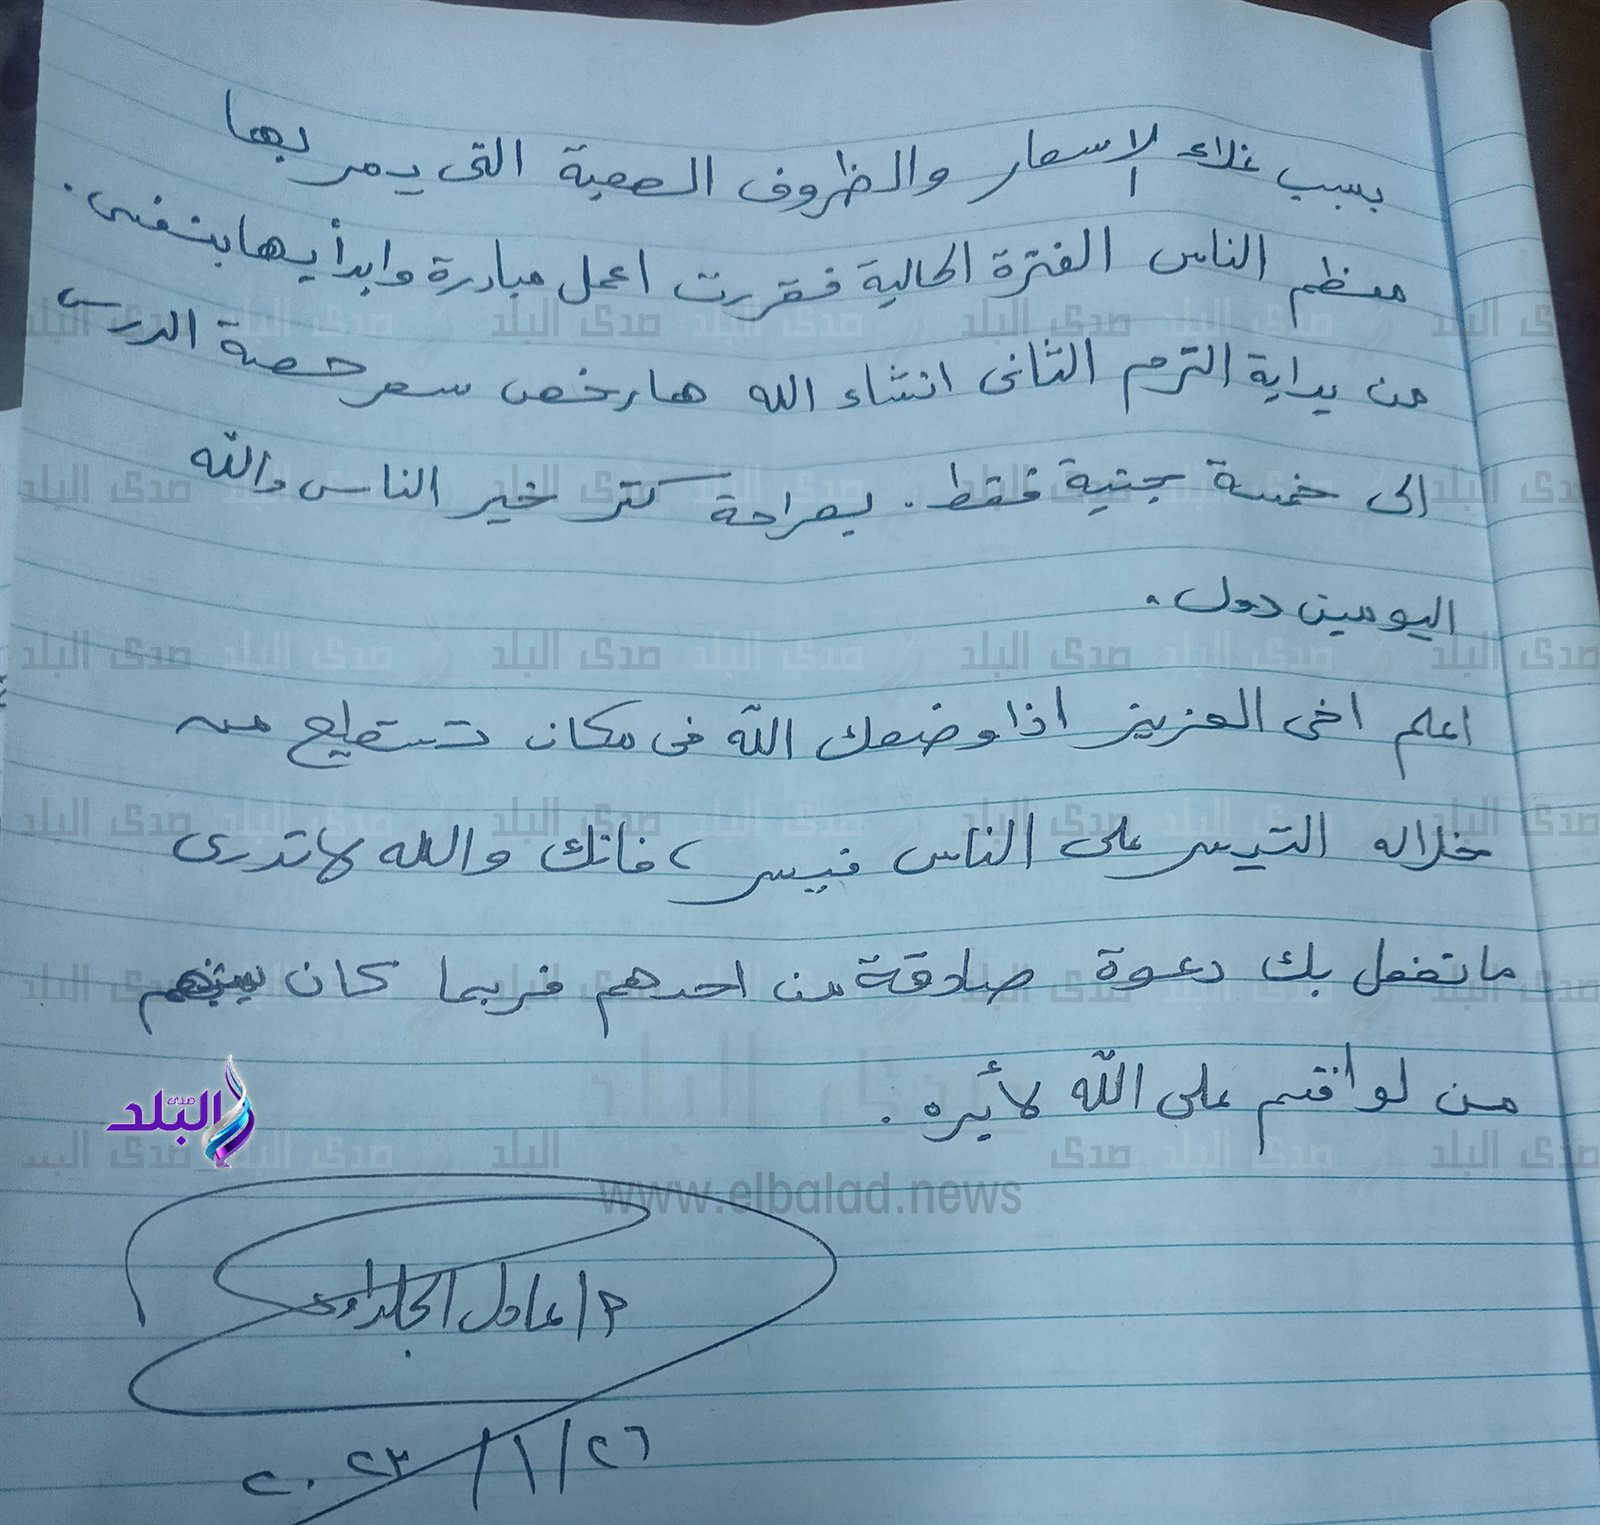 بسبب غلاء الاسعار والظروف الصعبة التى يمر بها
معظم الناس الفترة الحالية فقررت اعمل مبادرة وابدأ بيها بنفسى.
من بداية الترم الثانى انشاء الله هارخص سعر حصة الدرس
الى خمسة جنية فقط. بصراحة كتر خير الناس والله
اليومين دول.
اعلم اخى العزيز اذا وضعك الله فى مكان تستطيع من
خلاله التيسر على الناس فيسر، فانك والله لا تدرى
ما تفعل بك دعوة صادقة من احدهم فربما كان بينهم
من لو اقسم على الله لأبره.
صدى البلد
www.elbalad.news
م/ عادل الجلداوى
٢٦/١/٢٠٢٣